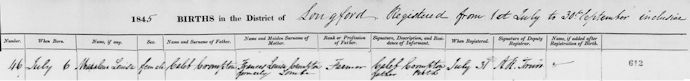 1845 BIRTHS in the District of Longford Registered from 1st July to 30th September inclusive
Number. When Born. Name, if any. Sex. Name and Surname of Father. Name and Maiden Surname of Mother. Rank or Profession of Father. Signature, Description, and Residence of Informant. When Registered. Signature of Deputy Registrar. Name, if added after Registration of Birth.
46 July 6 Louisa female Caleb Crompton Frances Louisa Crompton Farmer Caleb Crompton July 31
formerly father
612